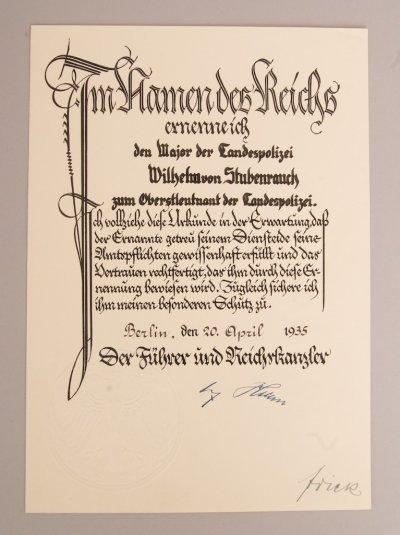 Im Namen des Reichs
ernenne ich
den Major der Landespolizei
Wilhelm von Stubenrauch
zum Oberstleutnant der Landespolizei.
Ich vollziehe diese Urkunde in der Erwartung, daß
der Ernannte getreu seinem Diensteide seine
Amtspflichten gewissenhaft erfüllt und das
Vertrauen rechtfertigt, das ihm durch diese Er-
nennung bewiesen wird. Zugleich sichere ich
ihm meinen besonderen Schutz zu.
Berlin, den 20. April 1935
Der Führer und Reichskanzler
Frick